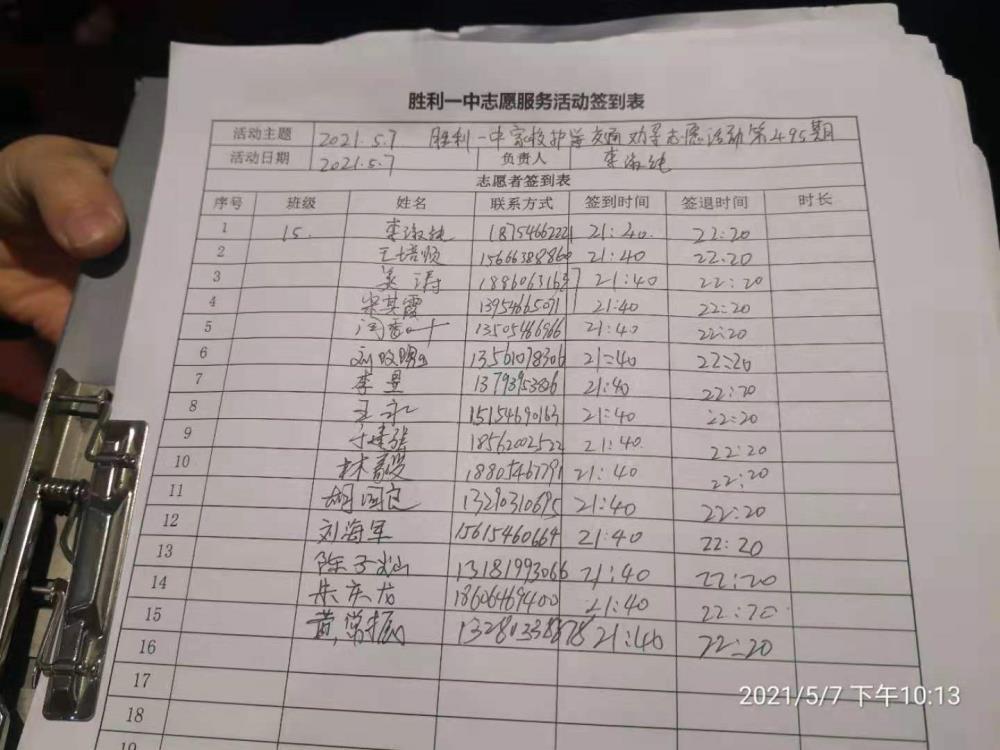 胜利一中志愿服务活动签到表
活动主题 2021.5.7 胜利一中家校护学交通劝导志愿活动第495期
活动日期 2021.5.7 负责人 李淑纯
志愿者签到表
序号 班级 姓名 联系方式 签到时间 签退时间 时长
1 15. 李淑纯 18754662221 21:40. 22:20
2 王培顺 15666388860 21:40 22:20
3 吴涛 21:40 22:20
4 宋其霞 13954665091 21:40 22:20
5 13505466966 21:40 22:20
6 13561078306 21:40 22:20
7 李昱 21:40 22:20
8 王永 15154690163 21:40 22:20
9 18562002522 21:40. 22:20
10 林霞 18805467791 21:40 22:20
11 胡国良 13290310695 21:40 22:20
12 刘海军 15615460664 21:40 22:20
13 陈子灿 13181993066 21:40 22:20
14 朱庆龙 18606469400 21:40 22:20
15 黄常振 13280338878 21:40 22:20
16
17
18
2021/5/7 下午10:13